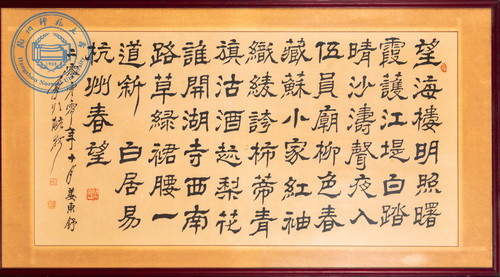 望海樓明照曙
霞護江堤白踏
晴沙濤聲夜入
伍員廟柳色春
藏蘇小家紅袖
織綾誇柿蒂青
旗沽酒趂梨花
誰開湖寺西南
路草綠裙腰一
道斜 白居易
杭州春望
年十月姜東舒
杭州师范大学
Hangzhou Normal University